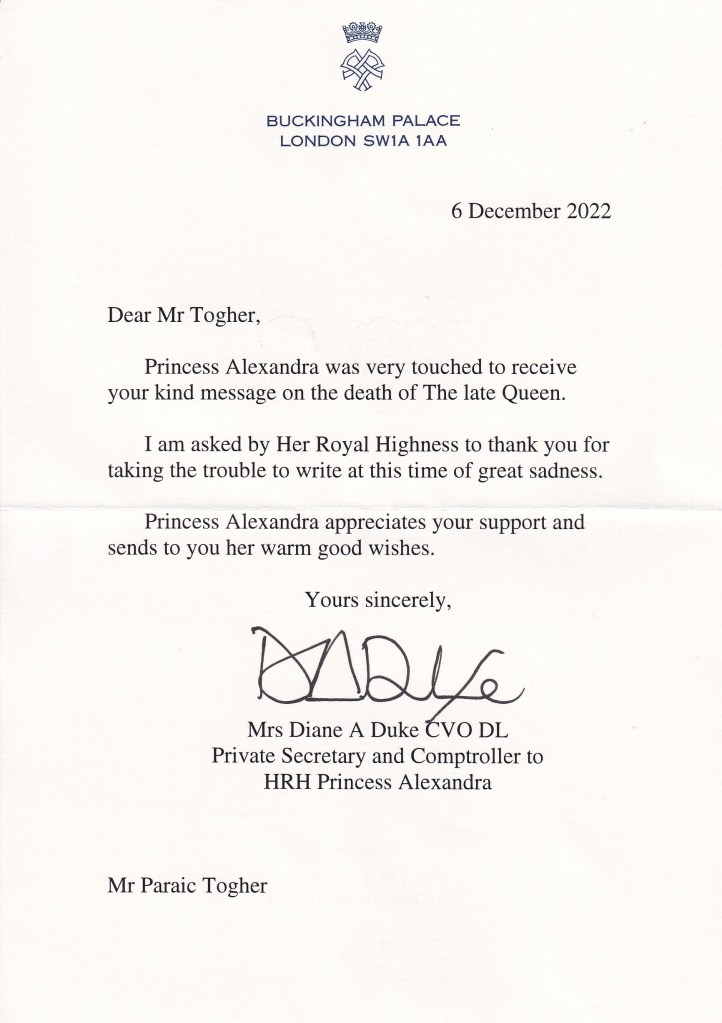 BUCKINGHAM PALACE
LONDON SW1A 1AA
6 December 2022
Dear Mr Togher,
Princess Alexandra was very touched to receive
your kind message on the death of The late Queen.
I am asked by Her Royal Highness to thank you for
taking the trouble to write at this time of great sadness.
Princess Alexandra appreciates your support and
sends to you her warm good wishes.
Yours sincerely,
DADuke
Mrs Diane A Duke CVO DL
Private Secretary and Comptroller to
HRH Princess Alexandra
Mr Paraic Togher